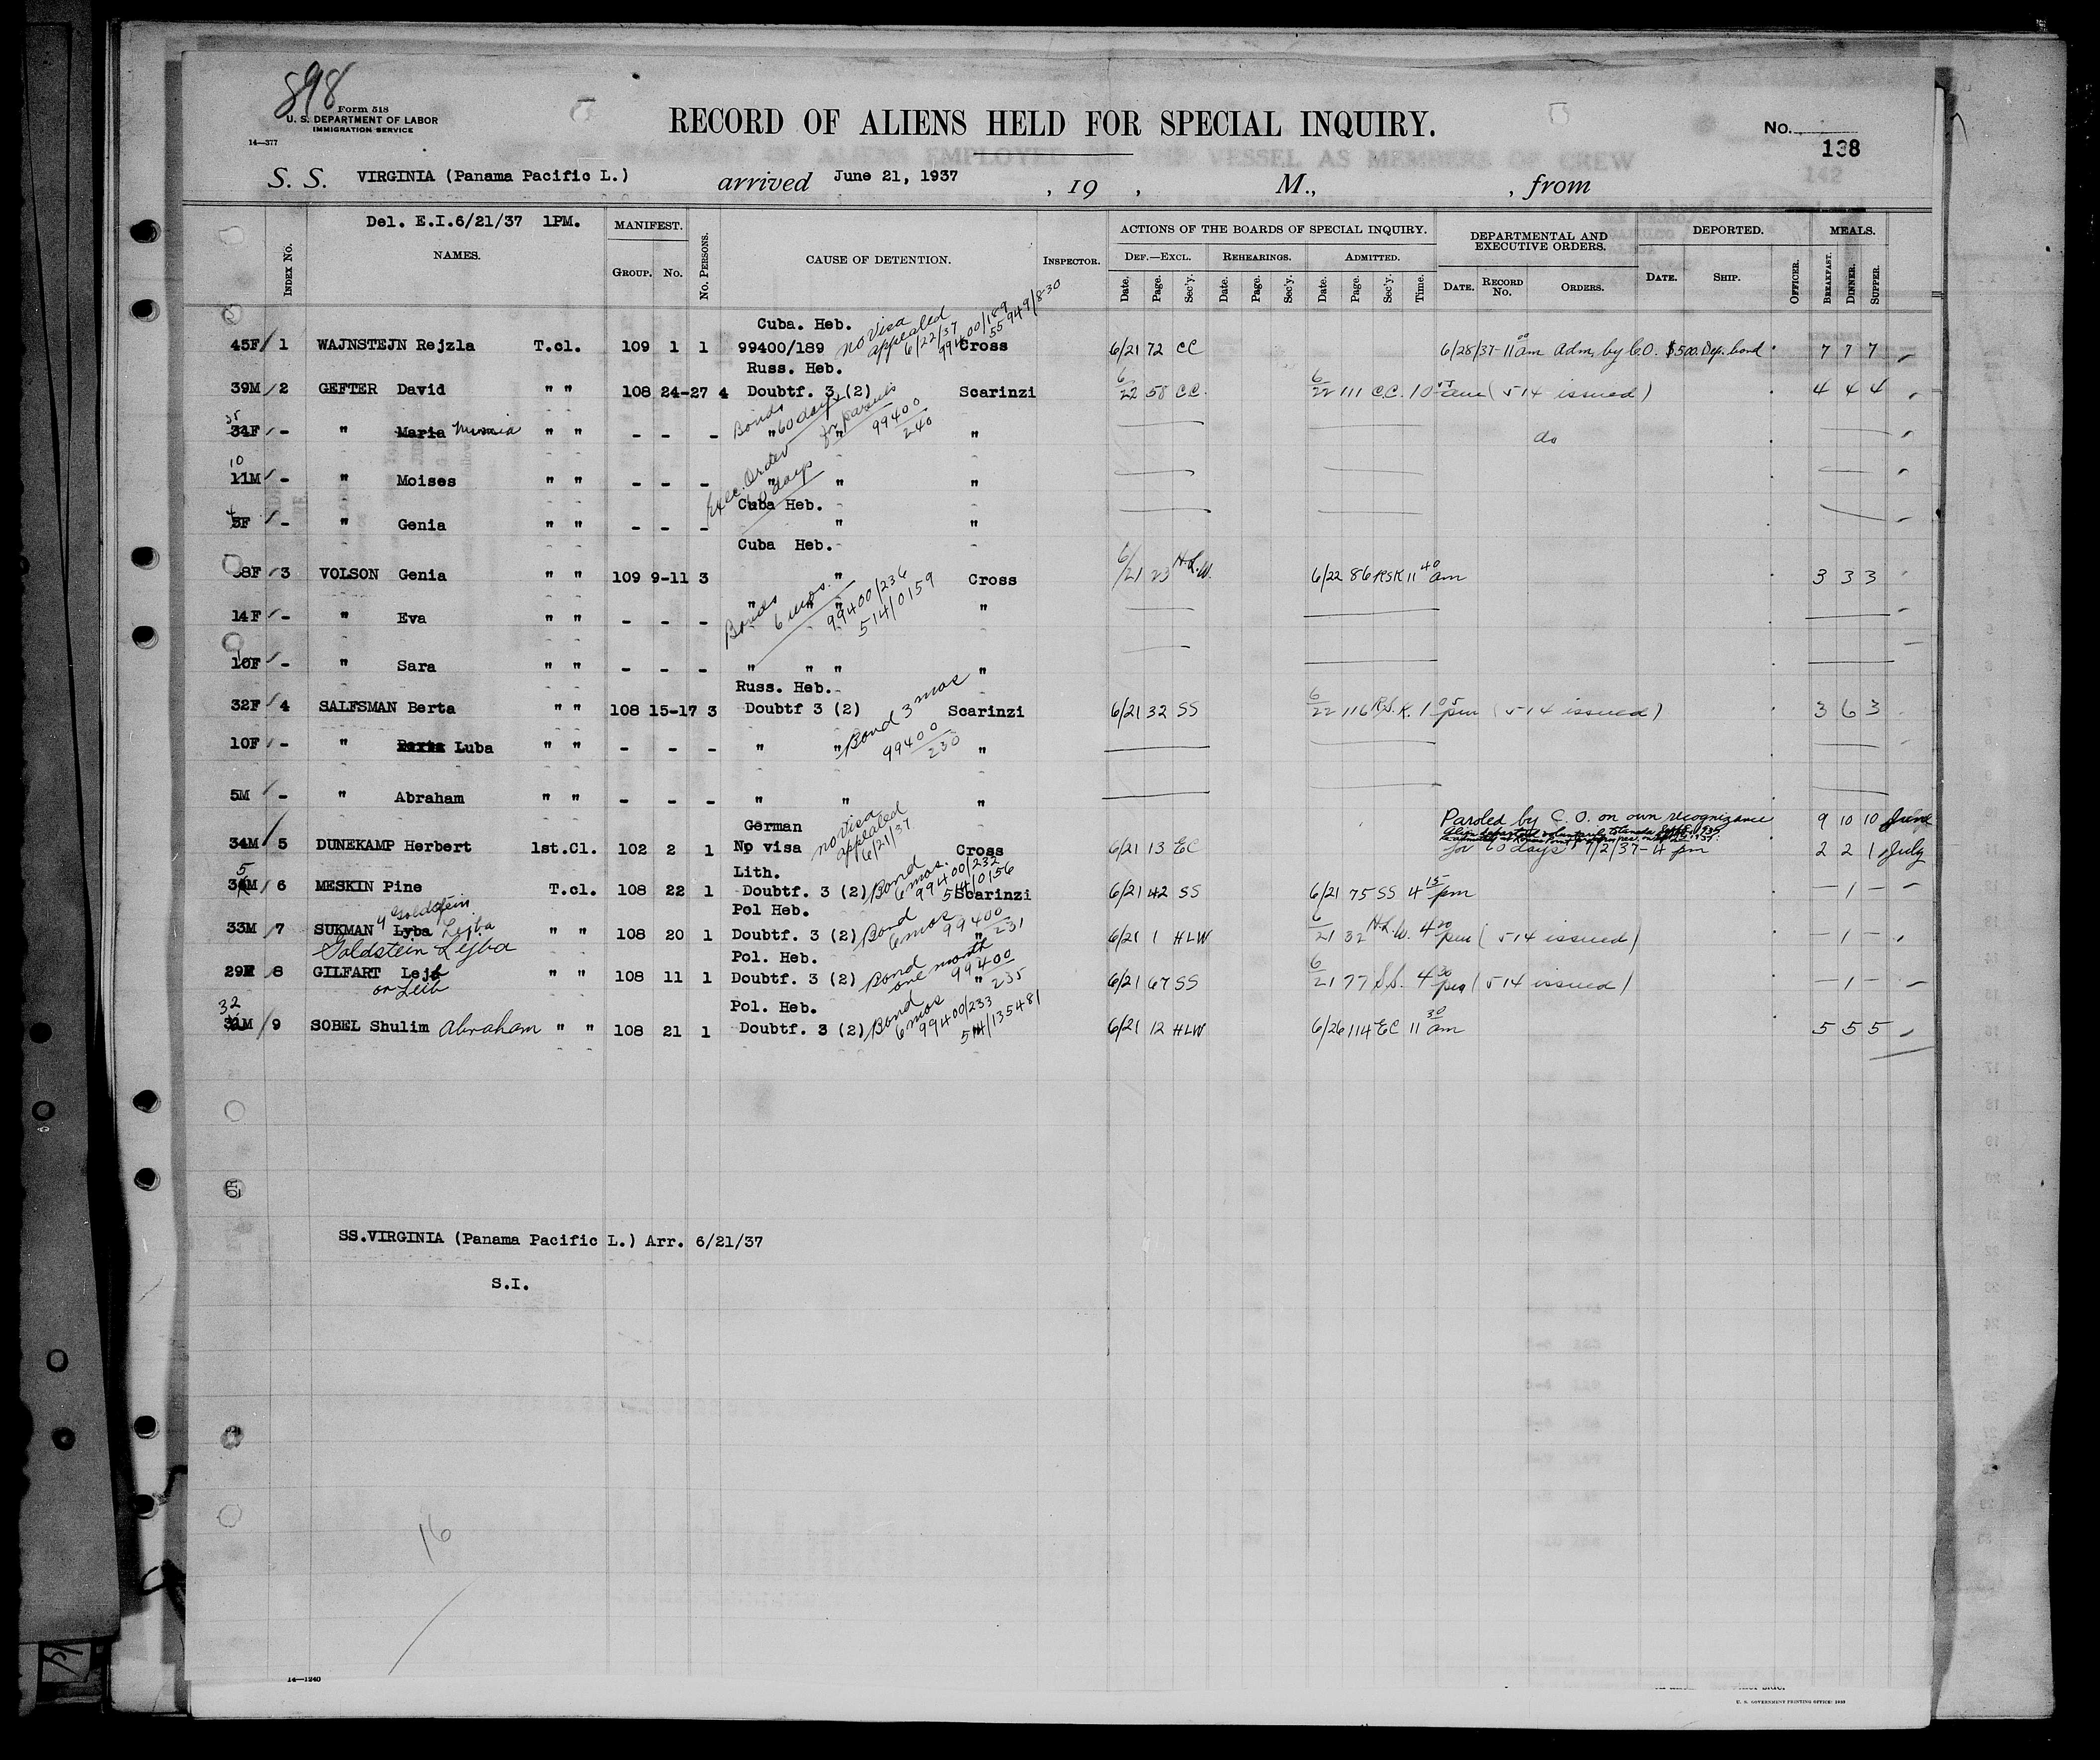 898
Form 518
U. S. DEPARTMENT OF LABOR
IMMIGRATION SERVICE
14—377
RECORD OF ALIENS HELD FOR SPECIAL INQUIRY.
No.
138
S. S. VIRGINIA (Panama Pacific L.) arrived June 21, 1937 , 19 , M., , from
Del. E.I.6/21/37 1PM.
INDEX NO. NAMES. MANIFEST. GROUP. NO. NO. PERSONS. CAUSE OF DETENTION. INSPECTOR. ACTIONS OF THE BOARDS OF SPECIAL INQUIRY. DEF.—EXCL. Date. Page. Sec'y. REHEARINGS. Date. Page. Sec'y. ADMITTED. Date. Page. Sec'y. Time. DEPARTMENTAL AND EXECUTIVE ORDERS. DATE. RECORD NO. ORDERS. DEPORTED. DATE. SHIP. OFFICER. MEALS. BREAKFAST. DINNER. SUPPER.
Cuba. Heb. no visa appealed 6/22/37 99400/189 55949/830
45F 1 WAJNSTEJN Rejzla T.cl. 109 1 1 99400/189 Cross 6/21 72 CC 6/28/37-11 00 am Adm. by C.O. $500. Dep. bond 7 7 7
Russ. Heb.
39M 2 GEFTER David " " 108 24-27 4 Doubtf. 3 (2) Scarinzi 6/22 58 C.C. 6/22 111 C.C. (514 issued) 4 4 4
Bonds 60 days 99400/240
35
34F - " Maria " " - - - " " " do
10
11M - " Moises " " - - - " " "
Exec. Order 60 days
Cuba Heb.
4
5F - " Genia " " - - - " "
Cuba Heb.
38F 3 VOLSON Genia " " 109 9-11 3 " Cross 6/21 23 H.L.W. 6/22 86 RSK 11 40 am 3 3 3
Bonds 6 mos. 99400/236 514/0159
14F - " Eva " " - - - " " " "
10F - " Sara " " - - - " " " "
Russ. Heb.
32F 4 SALFSMAN Berta " " 108 15-17 3 Doubtf 3 (2) Scarinzi 6/21 32 SS 6/22 116 R.S.K. 1 05 pm (514 issued) 3 6 3
Bond 3 mos 99400/230
10F - " Luba " " - - - " " "
5M - " Abraham " " - - - " " "
German no visa appealed 6/21/37
Paroled by C. O. on own recognizance 9 10 10 June
34M 5 DUNEKAMP Herbert 1st.Cl. 102 2 1 No visa Cross 6/21 13 EC for 60 days 7/2/37-4 pm 2 2 1 July
Lith.
5
34M 6 MESKIN Pine T.cl. 108 22 1 Doubtf. 3 (2) Bond 6 mos. 99400/232 514/0156 Scarinzi 6/21 42 SS 6/21 75 SS 4 15 pm — 1 —
Pol Heb.
y Goldstein
33M 7 SUKMAN Lyba Lejba " " 108 20 1 Doubtf. 3 (2) Bond 6 mos 99400/231 " 6/21 1 HLW 6/21 32 H.L.W. 4 20 pm (514 issued) — 1 —
Goldstein Lejba
Pol. Heb.
29M 8 GILFART Lejb " " 108 11 1 Doubtf. 3 (2) Bond one month 99400/235 " 6/21 67 SS 6/21 77 S.S. 4 30 pm (514 issued) — 1 —
or Leib
Pol. Heb.
32
9 SOBEL Shulim Abraham " " 108 21 1 Doubtf. 3 (2) Bond 6 mos 99400/233 514/135481 6/21 12 HLW 6/26 114 EC 11 30 am 5 5 5
SS.VIRGINIA (Panama Pacific L.) Arr. 6/21/37
S.I.
16
14—1240
U. S. GOVERNMENT PRINTING OFFICE: